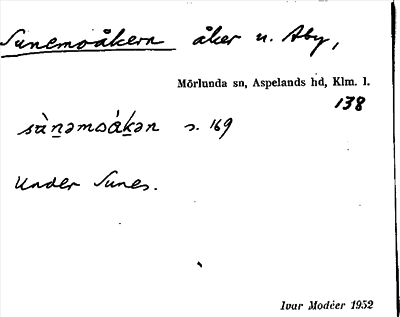 Sunemoåkern åker n. Aby,
Mörlunda sn, Aspelands hd, Klm. l.
138
sùn̲əmoák̲ən s. 169
Under Sunes.
Ivar Modéer 1952